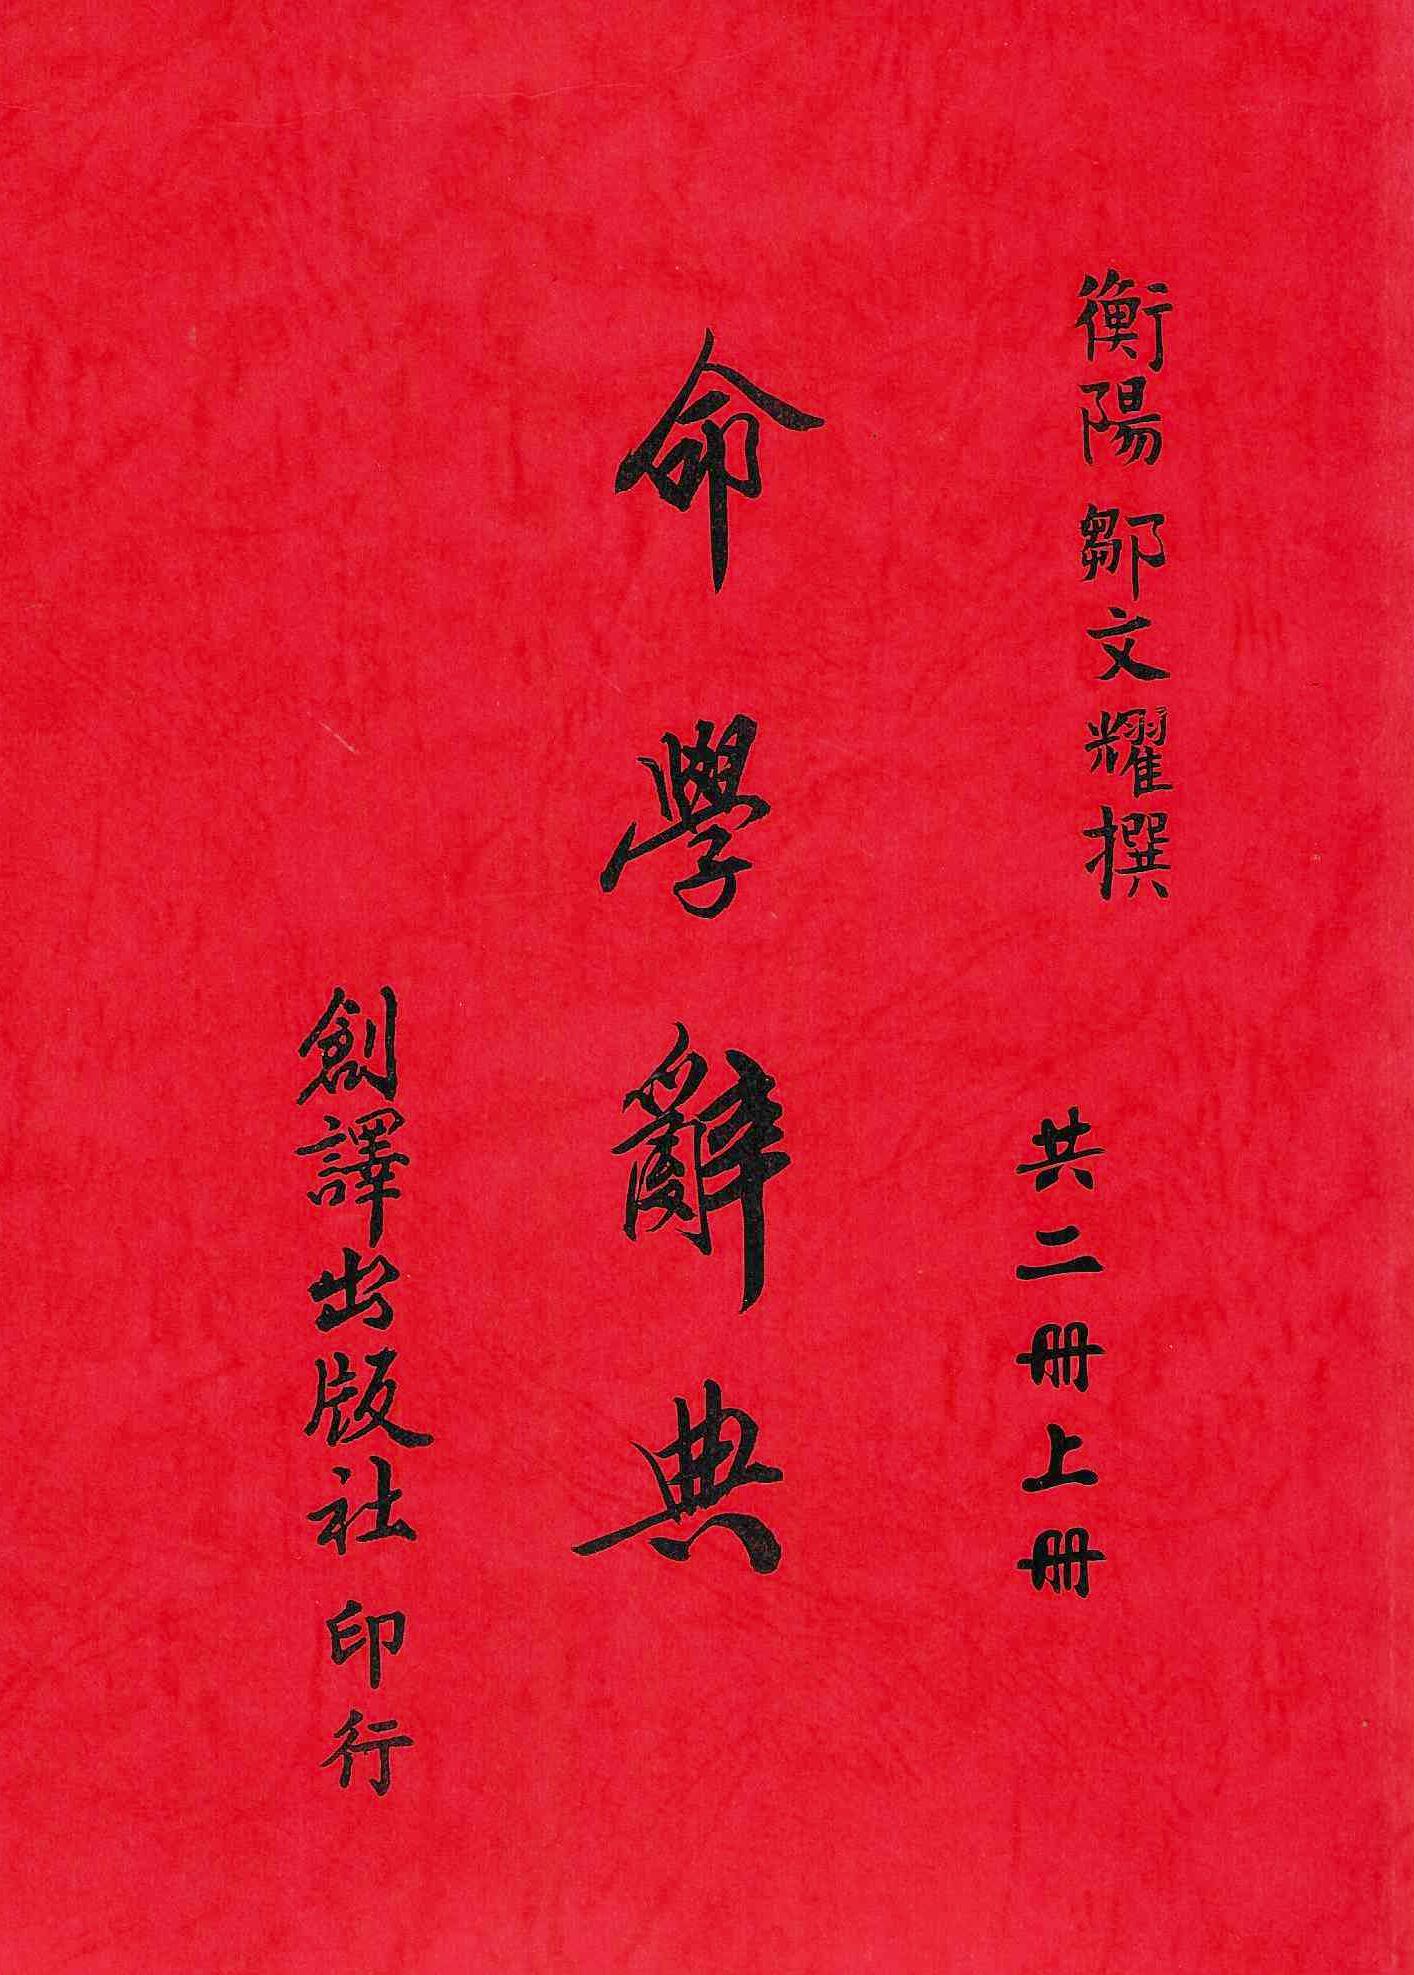 衡陽 鄒文耀撰
共二冊上冊
命學辭典
創譯出版社 印行